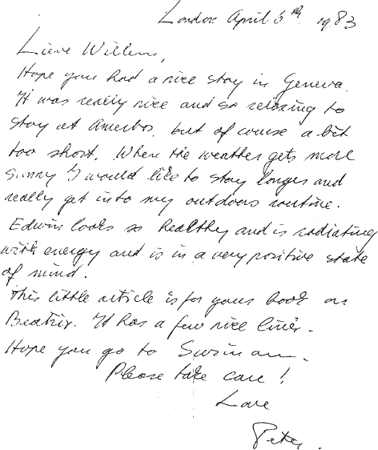 London April 6th 1983
Lieve Willem,
Hope you had a nice stay in Geneva.
It was really nice and so relaxing to
stay at but of course a bit
too short. When the weather gets more
sunny I would like to stay longer and
really get into my outdoors routine.
Edwin looks so healthy and is radiating
with energy and is in a very positive state
of mind.
This little article is for your book on
Beatrix. It has a few nice lines.
Hope you go to
Please take care!
Love
Peter.